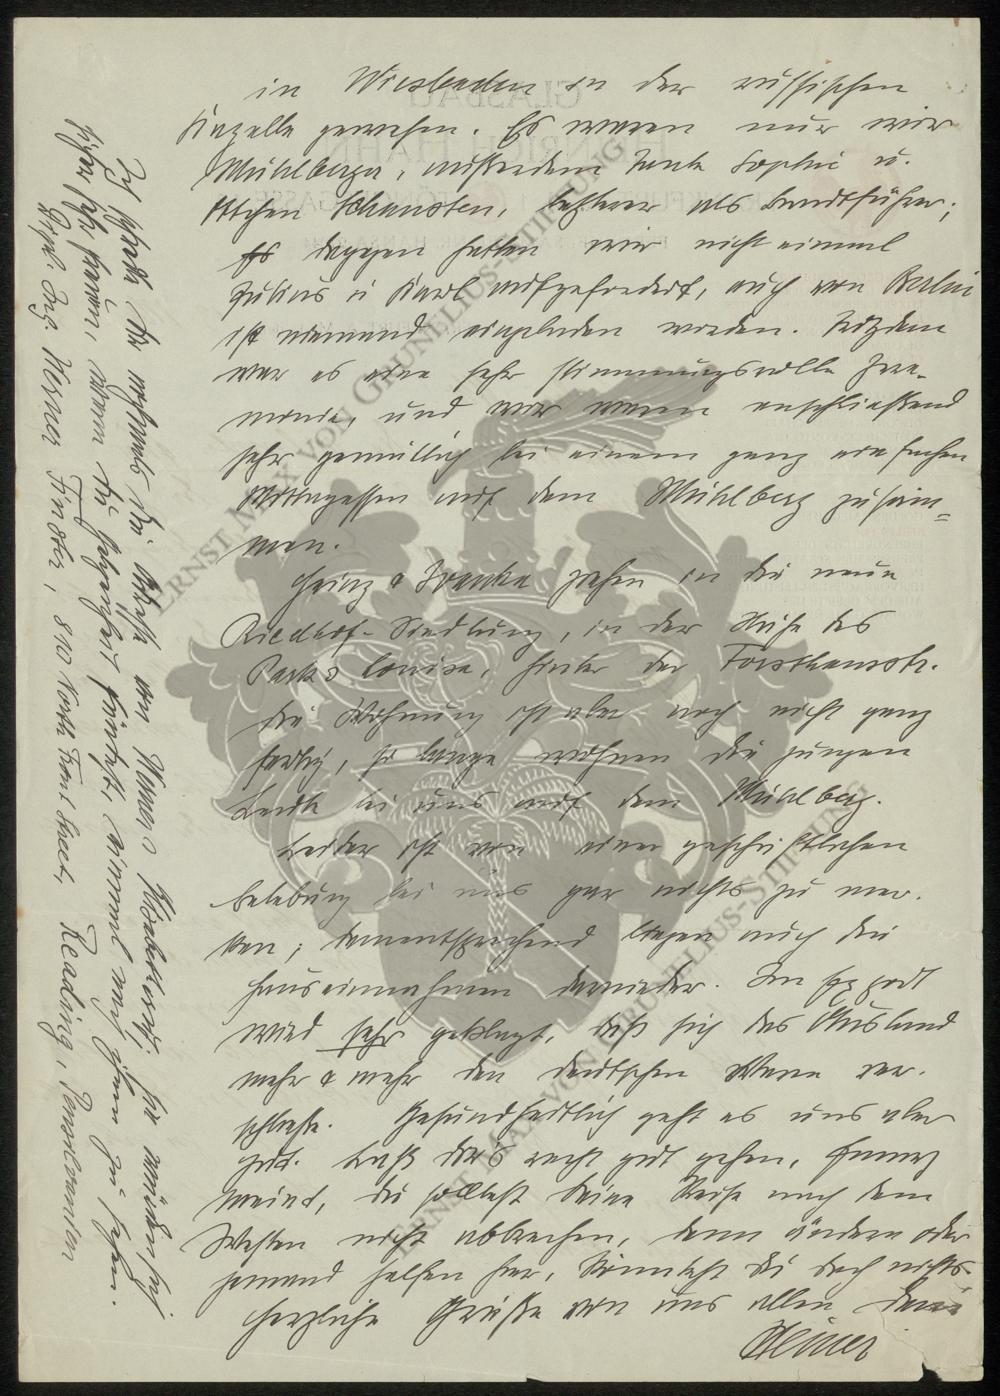 in Wiesbaden in der russischen
Kapelle gewesen. Es waren nur wir
Mühlberger, außerdem Tante Sophie u.
Ottchen Schansten, letzterer als Brautführer;
Es dagegen hatten wir nicht einmal
Julius u Karl aufgefordert, auch von Berlin
ist niemand eingeladen worden. Trotzdem
war es eine sehr stimmungsvolle Zere-
monie, und wir waren anschließend
sehr gemütlich bei einem ganz einfachen
Mittagessen auf dem Mühlberg zusam=
men.
Heinz & Branka ziehen in die neue
Riedhof-Siedlung, in der Nähe des
Parks Louisa, hinter der Forsthausstr.
Die Wohnung ist aber noch nicht ganz
fertig, so lange wohnen die jungen
Leute bei uns auf dem Mühlberg.
Leider ist von einer geschäftlichen
Belebung bei uns gar nichts zu mer-
ken; dementsprechend liegen auch die
Hauseinnahmen darnieder. Im Export
wird sehr geklagt, daß sich das Ausland
mehr & mehr der deutschen Ware ver-
schließe. Gesundheitlich geht es uns aber
gut. Laß Dir's recht gut gehen, Fanny
meint, Du solltest Deine Reise nach dem
Westen nicht abbrechen, denn ändern oder
jemand helfen hier, könntest Du doch nichts
Herzliche Grüße von uns allen Dein
Heiner
Ich schreibe Dir nochmals die Adresse von Werner; Sie würden sich
sehr freuen, wenn Du Gelegenheit findest, einmal nach ihnen zu sehen.
Dipl. Ing. Werner Finster, 810 North Front Street, Reading, Pensilvanien
GLASBAU
HEINRICH HAHN
ERNST MAX VON GRUNELIUS-STIFTUNG
ERNST MAX VON GRUNELIUS-STIFTUNG